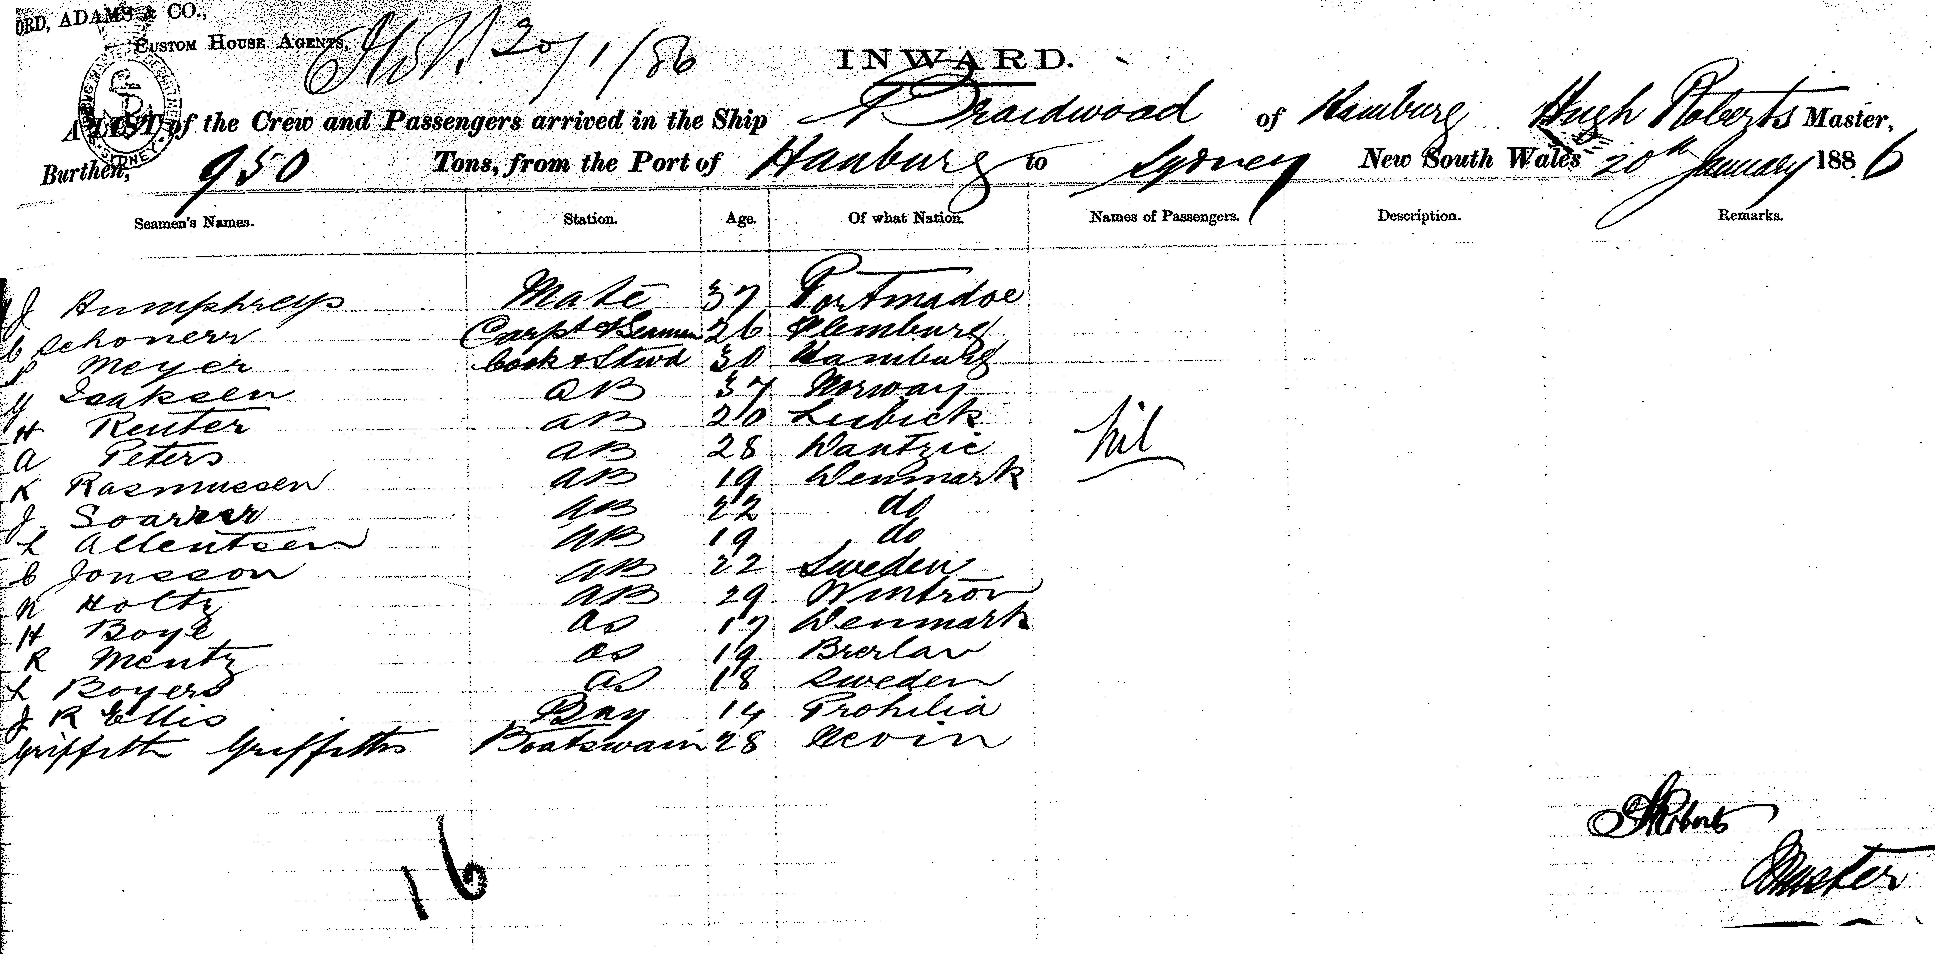 ORD, ADAMS & CO.,
CUSTOM HOUSE AGENTS,
20/1/86
INWARD.
A LIST of the Crew and Passengers arrived in the Ship Braidwood of Hamburg Hugh Roberts Master,
Burthen, 950 Tons, from the Port of Hanburg to Sydney New South Wales 20th January 1886
Seamen's Names. Station. Age. Of what Nation. Names of Passengers. Description. Remarks.
J Humphreys Mate 37 Portmadoc
C Schonerr Carpt & Seaman 26 Hamburg
P Meyer Cook & Stwd 30 Hamburg
Isaksen AB 37 Norway
H Reuter AB 20 Lubick
A Peters AB 28 Dantzic
Nil
K Rasmussen AB 19 Denmark
J. AB 22 do
L Allentsen AB 19 do
C Jonsson AB 22 Sweden
N Holtz AB 29
H Boye OS 17 Denmark
R Mentz OS 19
L Boyers OS 18 Sweden
J R Ellis Boy 14
Griffith Griffiths Boatswain 28 Nevin
H Roberts
Master
16
SYDNEY